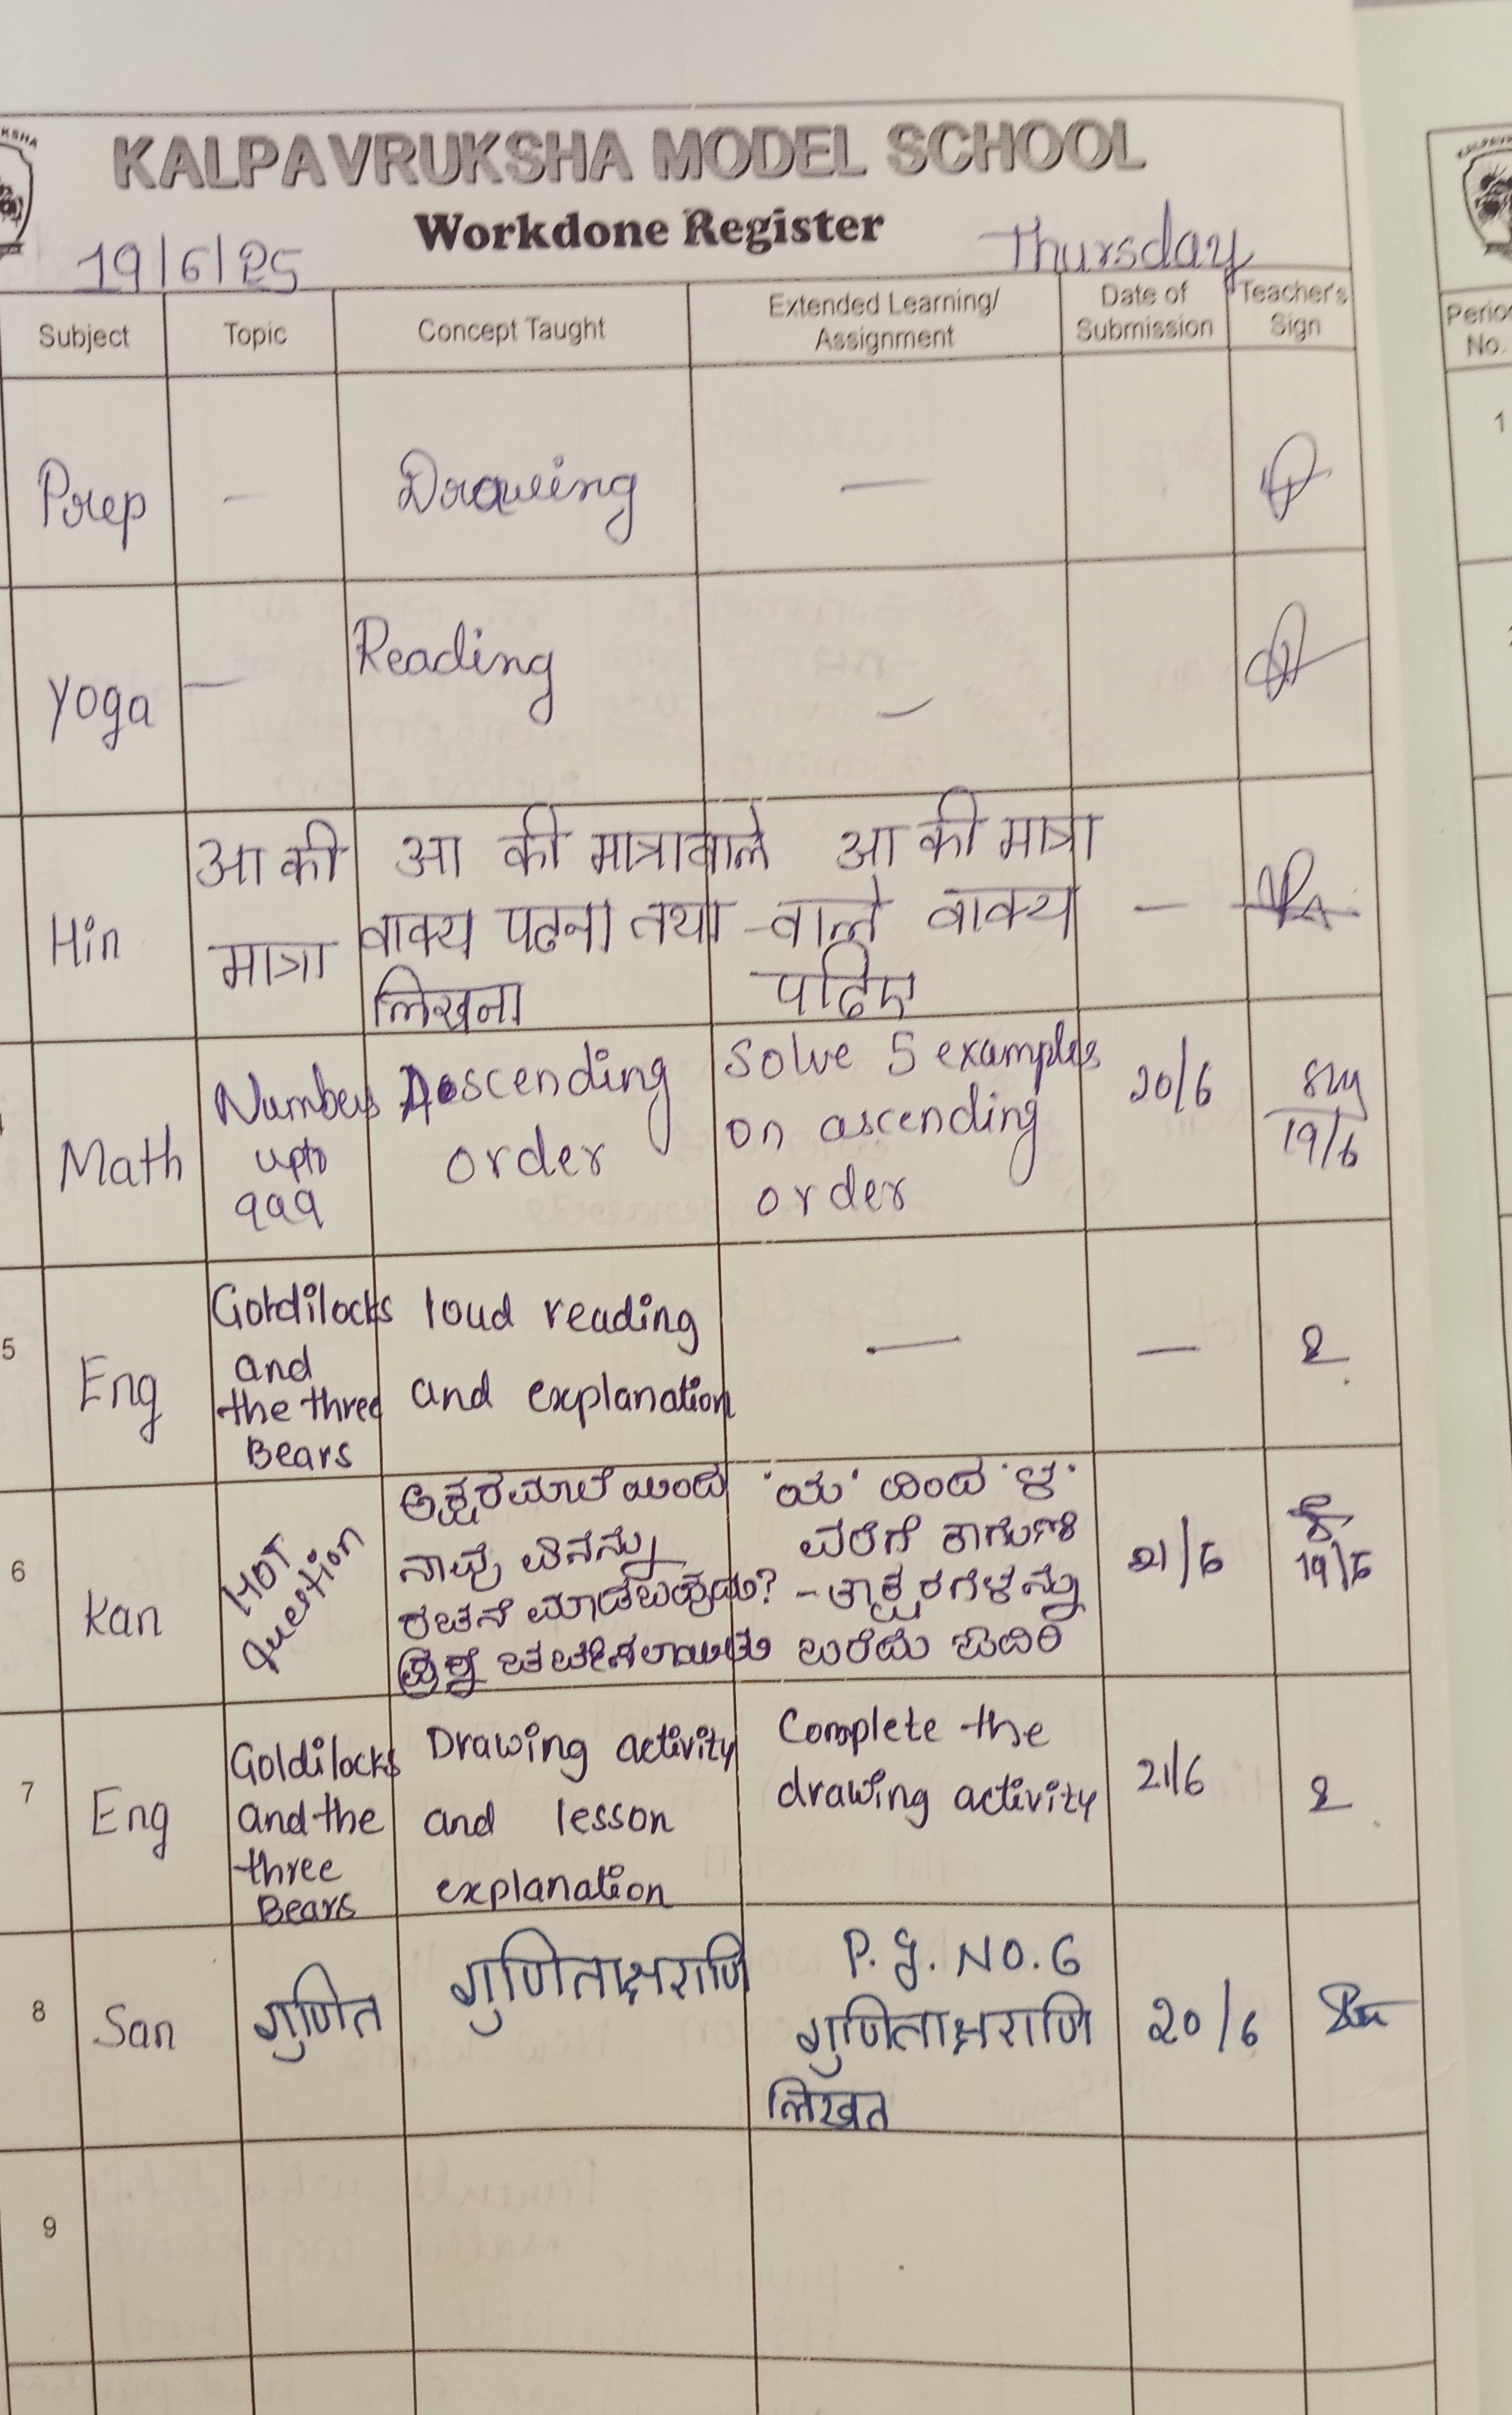 KALPAVRUKSHA MODEL SCHOOL
Workdone Register
19/6/25 Thursday
Subject Topic Concept Taught Extended Learning/ Assignment Date of Submission Teacher's Sign
Prep - Drawing -
Yoga - Reading -
Hin
आ की
मात्रा
आ की मात्रावाले
वाक्य पढना तथा
लिखना
आ की मात्रा
-वाले वाक्य
पढिए
-
Math
Numbers
upto
999
Ascending
order
Solve 5 examples
on ascending
order
20/6
19/6
5
Eng
Goldilocks
and
the three
Bears
loud reading
and explanation
-
-
6
Kan
HOT
Question
ಅಕ್ಷರಮಾಲೆಯಿಂದ
ನಾವು ಏನನ್ನು
ರಚನೆ ಮಾಡಬಹುದು?
ಪ್ರಶ್ನೆ ಚರ್ಚಿಸಲಾಯಿತು
'ಯ' ದಿಂದ 'ಳ'
ವರೆಗೆ ಕಾಗುಣಿ
-ತಾಕ್ಷರಗಳನ್ನು
ಬರೆದು ಓದಿರಿ
21/6
19/6
7
Eng
Goldilocks
and the
three
Bears
Drawing activity
and lesson
explanation
Complete the
drawing activity
21/6
8
San
गुणित
गुणिताक्षराणि
P.g. No. 6
गुणिताक्षराणि
लिखत
20/6
9
Period
No.
1